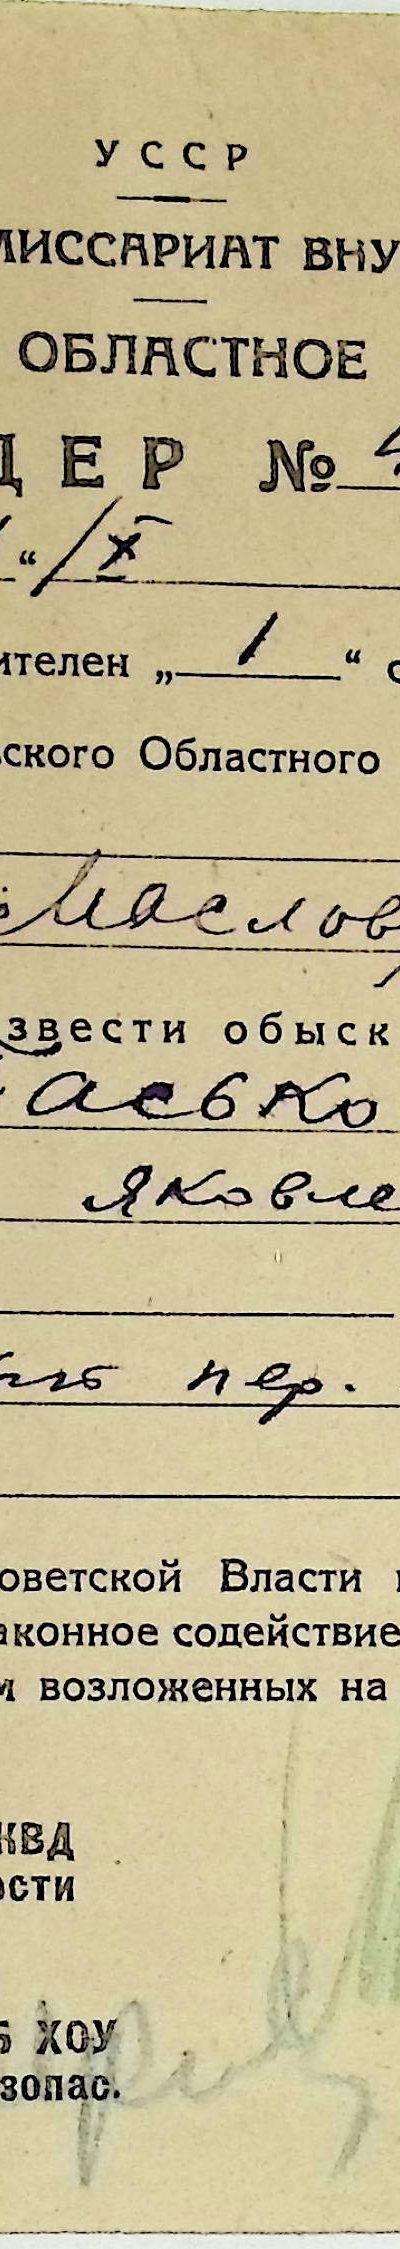 УССР
МИССАРИАТ ВНУ
ОБЛАСТНОЕ
ДЕР №
“ / X
ителен „ 1 “ с
ского Областного
Маслов
звести обыск
асько
Яковле
пер.
оветской Власти
аконное содействие
м возложенных на
КВД
ости
Б ХОУ
зопас.